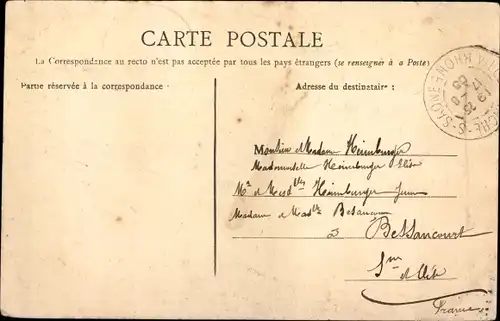 CARTE POSTALE
La Correspondance au recto n'est pas acceptée par tous les pays étrangers (se renseigner à a Poste)
Partie réservée à la correspondance :
Adresse du destinataire :
Monsieur et Madame Heimburger
Mademoiselle Heimburger
Mr et Mesdlles Heimburger
Madame et Madlle Besançon
à Bessancourt
France